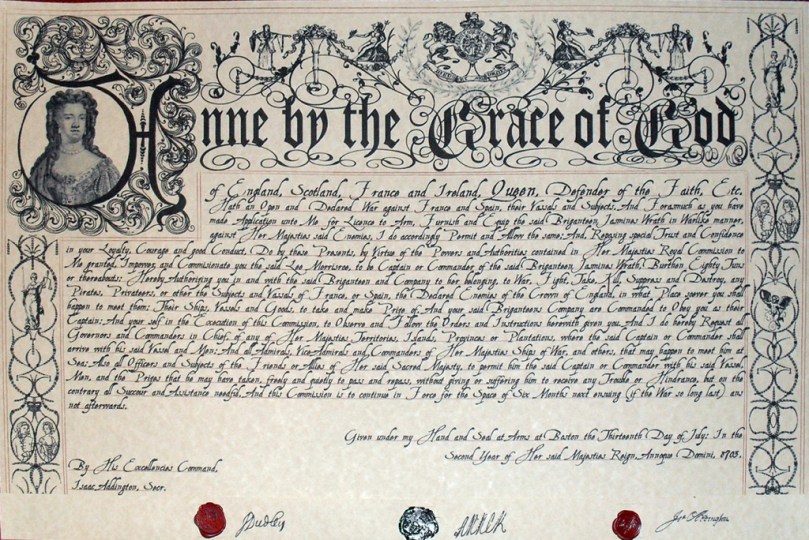 Anne by the Grace of God
of England, Scotland, France and Ireland, Queen, Defender of the Faith, Etc.
Hath an Open and Declared War against France and Spain, their Vassals and Subjects. And Forasmuch as you have
made Application unto Me for Licence to Arm, Furnish and Equip the said Briganteen, Jasmines Wrath in Warlike manner,
against Her Majesties said Enemies, I do accordingly Permit and Allow the same: And, Reposing special Trust and Confidence
in your Loyalty, Courage and good Conduct, Do by these Presents, by Virtue of the Powers and Authorities contained in Her Majesties Royal Commission to
Me granted, Impower and Commisionate you the said Lee Morrisroe, to be Captain or Commander of the said Briganteen, Jasmines Wrath, Burthen Eighty Tuns
or thereabouts: Hereby Authorising you in and with the said Briganteen and Company to her belonging, to War, Fight, Take, Kill, Suppress and Destroy, any
Pirates, Privateers, or other the Subjects and Vassals of France, or Spain, the Declared Enemies of the Crown of England, in what Place soever you shall
happen to meet them; Their Ships, Vessels and Goods, to take and make Prize of. And your said Briganteens Company are Commanded to Obey you as their
Captain: And your self in the Execution of this Commission, to Observe and Follow the Orders and Instructions herewith given you. And I do hereby Request all
Governors and Commanders in Chief, of any of Her Majesties Territories, Islands, Provinces or Plantations, where the said Captain or Commander shall
arrive with his said Vessel and Men: And all Admirals, Vice-Admirals and Commanders of Her Majesties Ships of War, and others, that may happen to meet him at
Sea; Also all Officers and Subjects of the Friends or Allies of Her said Sacred Majesty, to permit him the said Captain or Commander with his said Vessel
Men, and the Prizes that he may have taken, freely and quietly to pass and repass, without giving or suffering him to receive any Trouble or Hindrance, but on the
contrary all Succour and Assistance needful. And this Commission is to continue in Force for the Space of Six Months next ensuing (if the War so long last) ans
not afterwards.
Given under my Hand and Seal at Arms at Boston the Thirteenth Day of July: In the
Second Year of Her said Majesties Reign, Annoque Domini, 1703.
By His Excellencies Command,
Isaac Addington, Secr.
JDudley